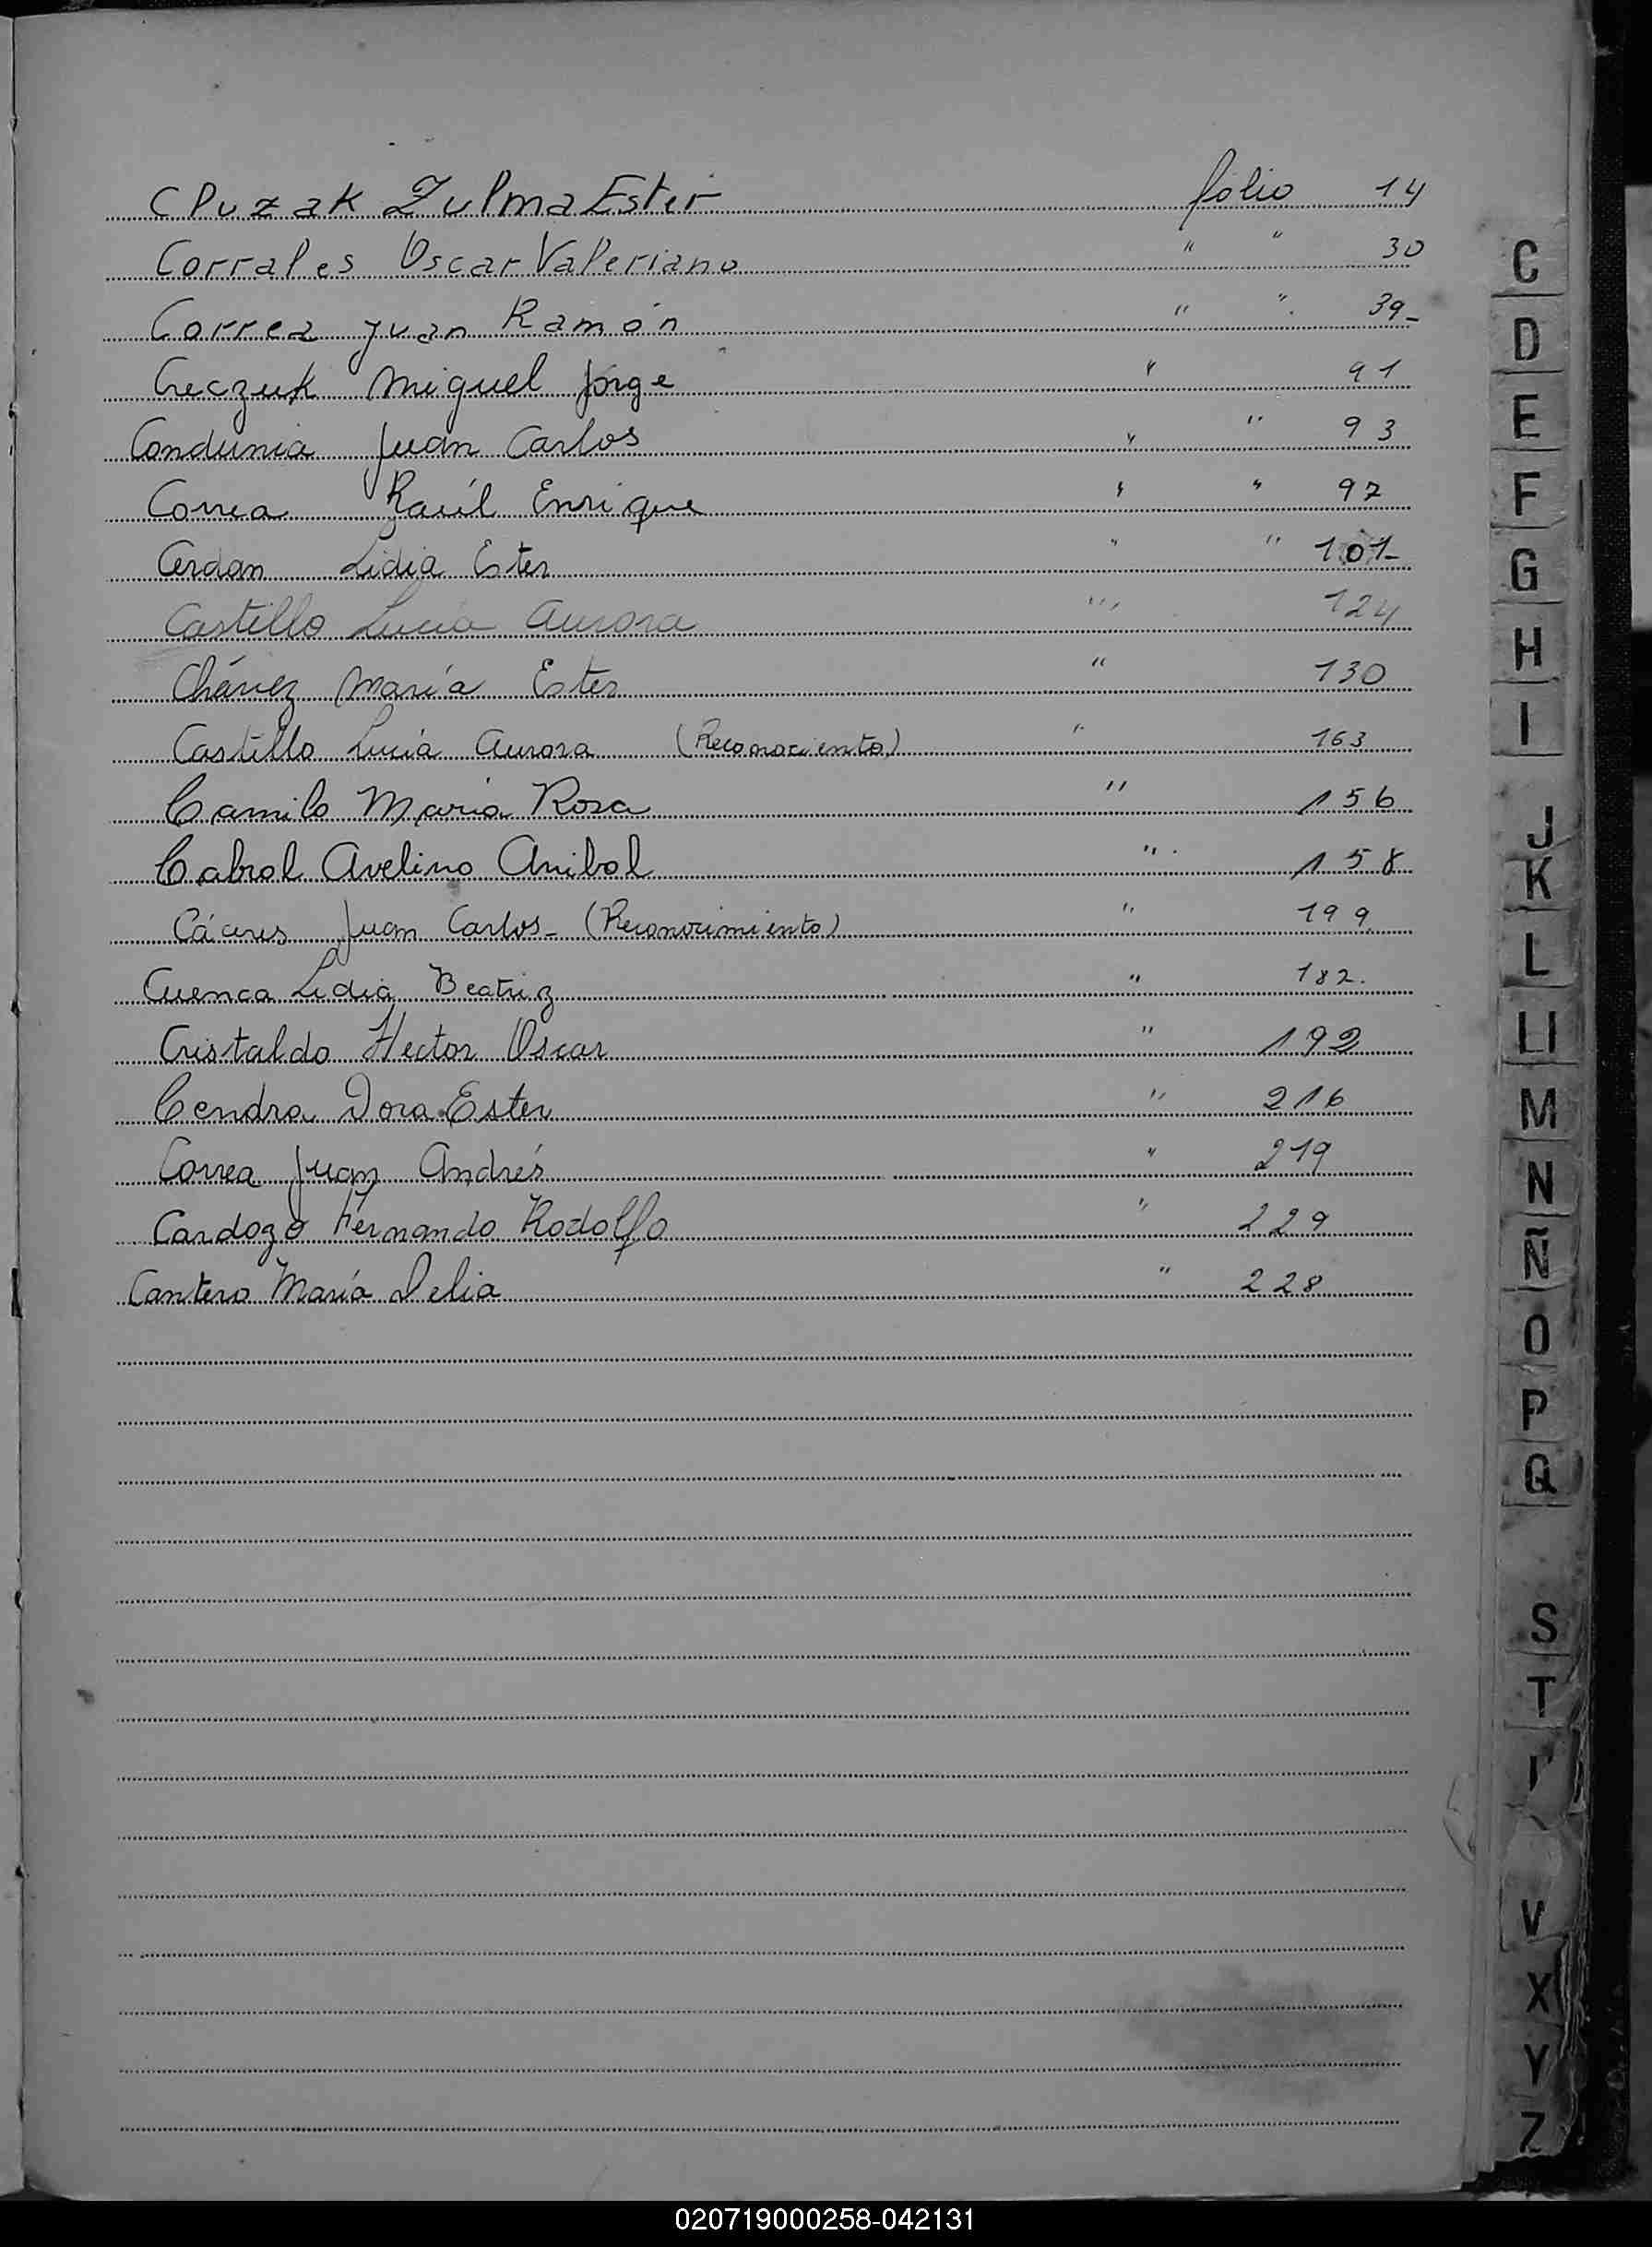 Cluzak Zulma Ester folio 14
Corrales Oscar Valeriano " " 30
Correa Juan Ramón " " 39-
Creczuk Miguel Jorge " 91
Condunia Juan Carlos " " 93
Correa Raúl Enrique " " 97
Cerdan Lidia Ester " " 101-
Castillo Lucía Aurora " 124
Chávez María Ester " 130
Castillo Lucía Aurora (Reconociento) " 163
Camilo María Rosa " 156
Cabral Avelino Anibal " 158
Cáceres Juan Carlos - (Reconocimiento) " 199
Cuenca Lidia Beatriz " 182.
Cristaldo Hector Oscar " 192
Cendra Dora Ester " 216
Correa Juan Andrés " 219
Cardozo Fernando Rodolfo " 229
Cantero María Delia " 228
C
D
E
F
G
H
I
J
K
L
Ll
M
N
Ñ
O
P
Q
S
T
V
X
Y
Z
020719000258-042131